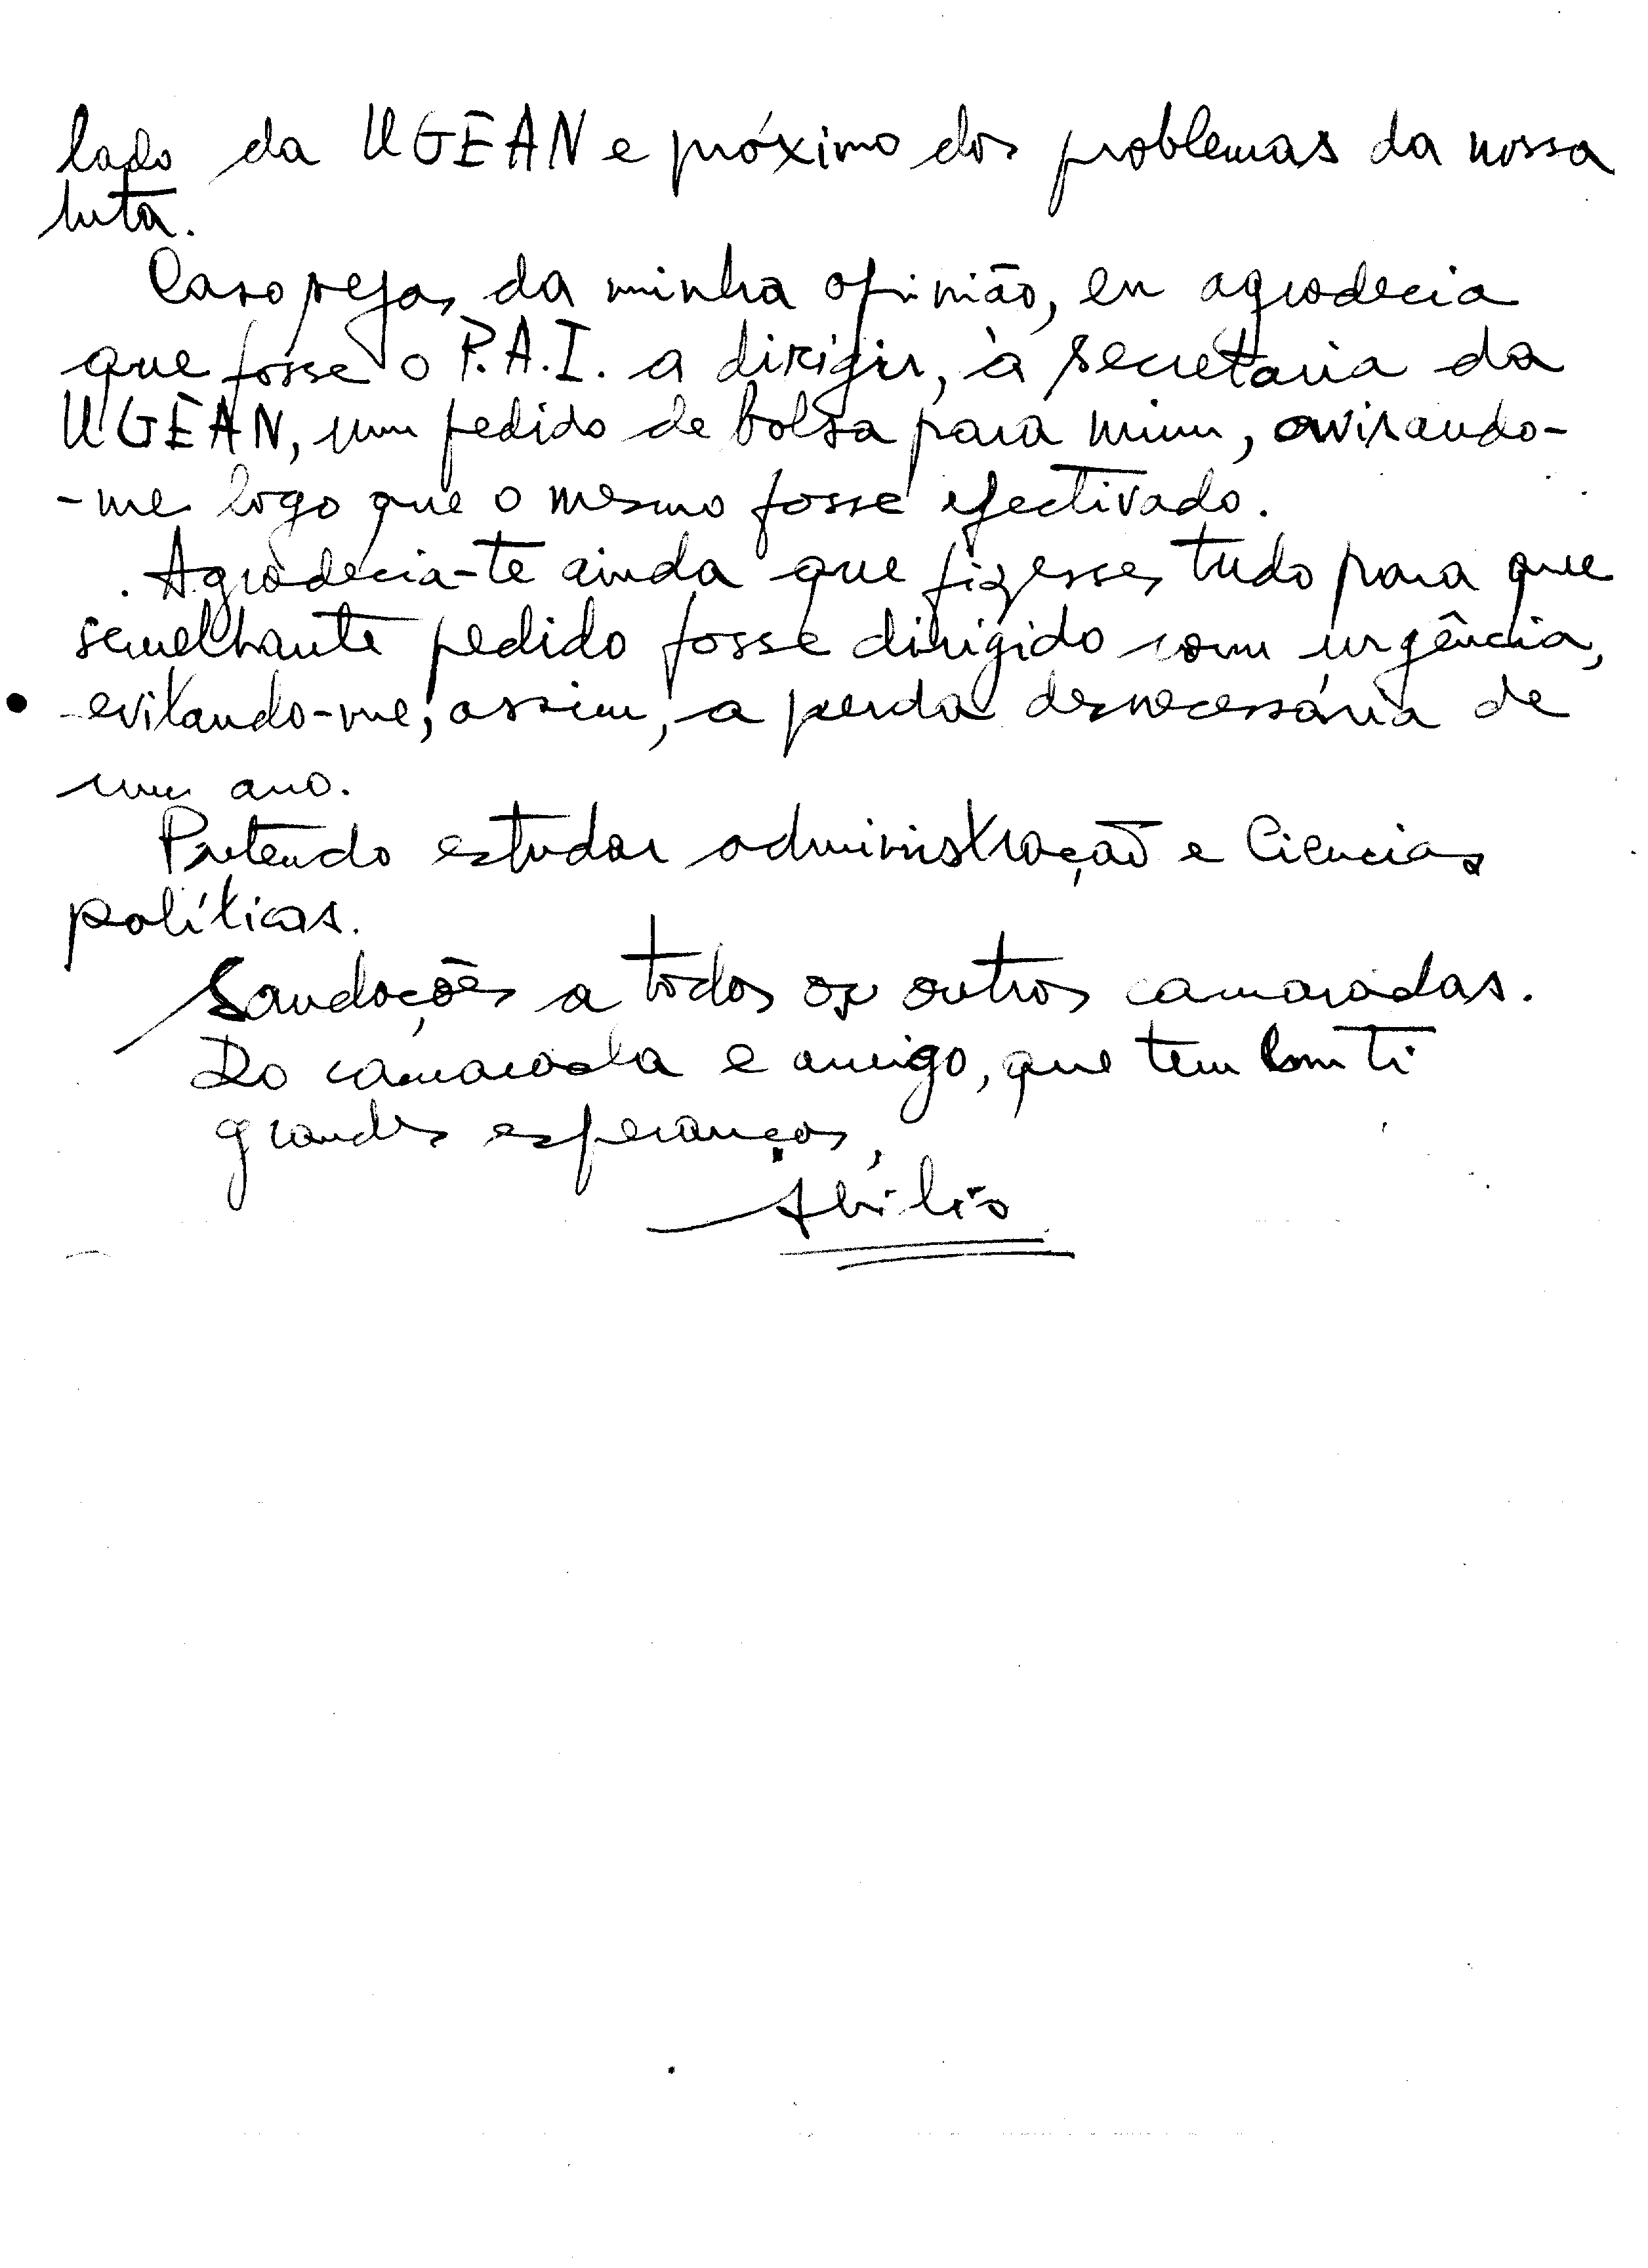 lado da UGEAN e próximo dos problemas da nossa
luta.
Caso sejas da minha opinião, eu agradecia
que fosse o P.A.I. a dirigir, à secretaria da
UGEAN, um pedido de bolsa para mim, avisando-
-me logo que o mesmo fosse efectivado.
Agradecia-te ainda que fizesses tudo para que
semelhante pedido fosse dirigido com urgência,
evitando-me, assim, a perda desnecessária de
um ano.
Pretendo estudar administração e Ciencias
políticas.
Saudações a todos os outros camaradas.
Do camarada e amigo, que tem em ti
grandes esperanças,
Abílio